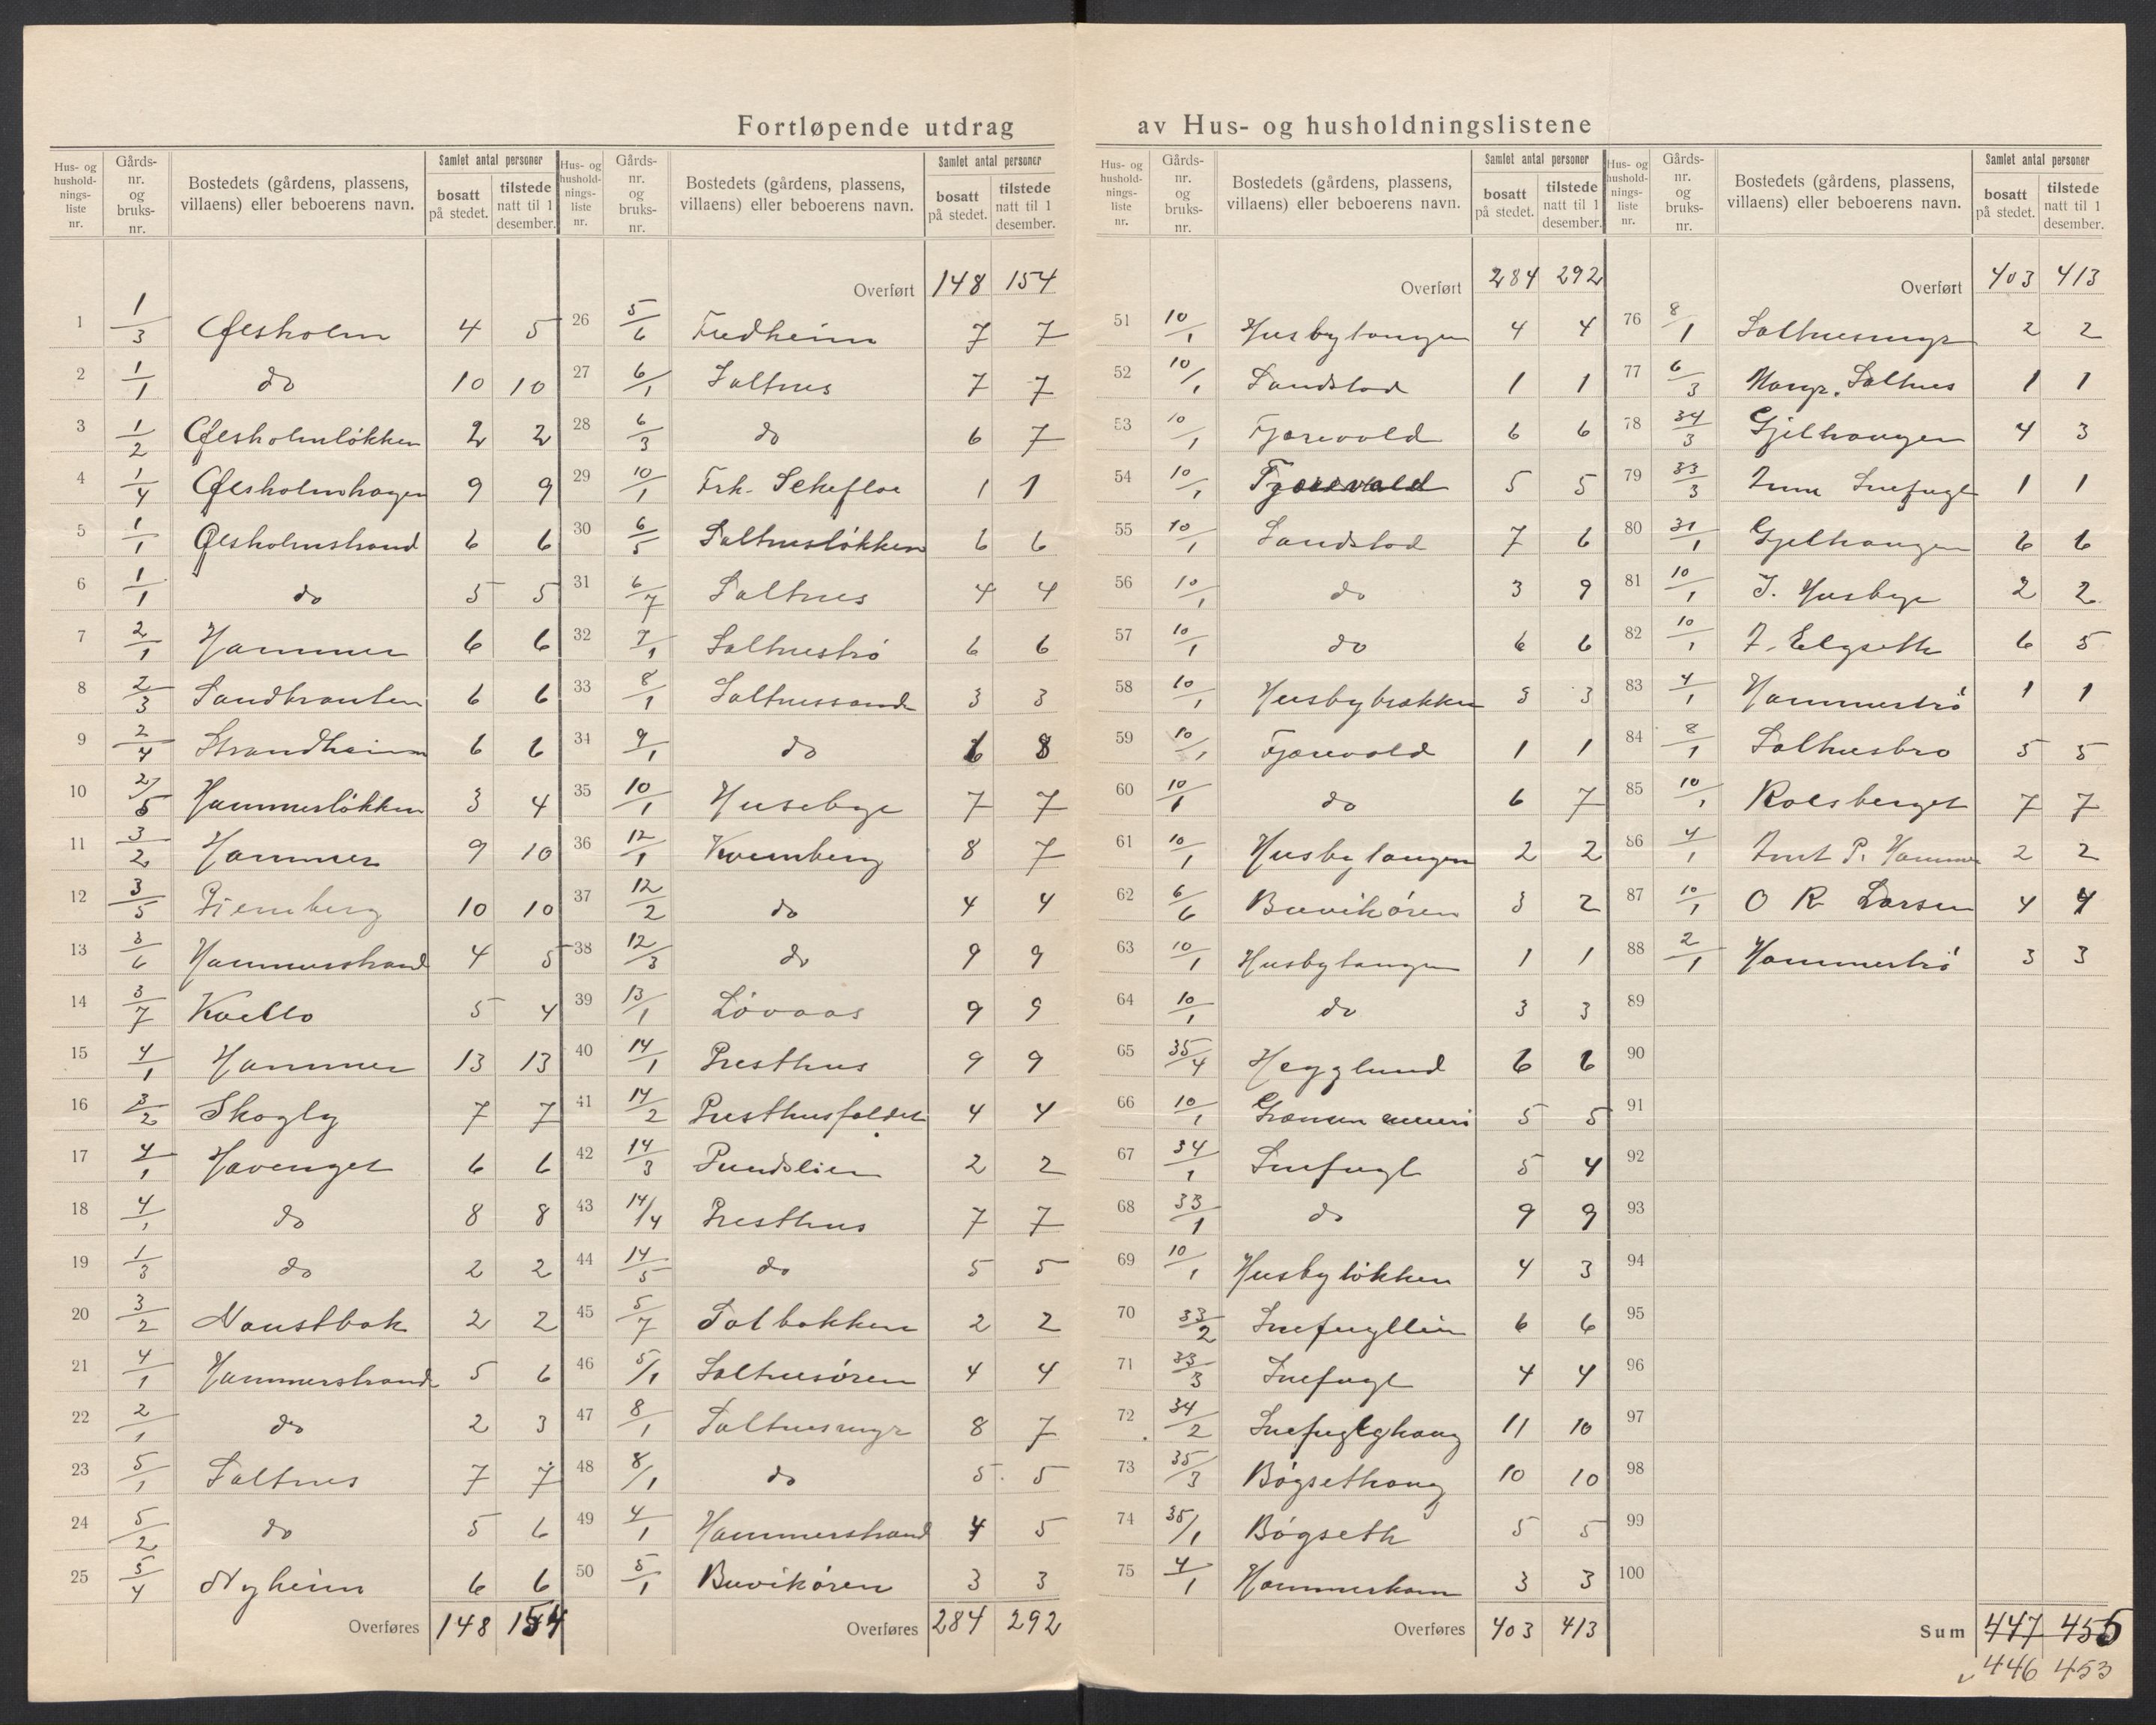 Fortløpende utdrag av Hus- og husholdningslistene
Hus- og hushold- nings- liste nr. Gårds- nr. og bruks- nr. Bostedets (gårdens, plassens, villaens) eller beboerens navn. Samlet antal personer bosatt på stedet. tilstede natt til 1 desember.
1 1/3 Øesholm 4 5
2 1/1 do 10 10
3 1/2 Øesholmløkken 2 2
4 1/4 Øesholmhagen 9 9
5 1/1 Øesholmstrand 6 6
6 1/1 do 5 5
7 2/1 Hammer 6 6
8 2/3 Sandbrauten 6 6
9 2/4 Strandheim 6 6
10 2/5 Hammerløkken 3 4
11 3/2 Hammer 9 10
12 3/5 10 10
13 3/6 Hammerstrand 4 5
14 3/7 Kvello 5 4
15 4/1 Hammer 13 13
16 3/2 Skogly 7 7
17 4/1 Havenget 6 6
18 4/1 do 8 8
19 1/3 do 2 2
20 3/2 Naustbak 2 2
21 4/1 Hammerstrand 5 6
22 2/1 do 2 3
23 5/1 Saltnes 7 7
24 5/2 do 5 6
25 5/4 Nyheim 6 6
Overføres 148 154
Hus- og hushold- nings- liste nr. Gårds- nr. og bruks- nr. Bostedets (gårdens, plassens, villaens) eller beboerens navn. Samlet antal personer bosatt på stedet. tilstede natt til 1 desember.
Overført 148 154
26 5/6 Fredheim 7 7
27 6/1 Saltnes 7 7
28 6/3 do 6 7
29 10/1 Frk. 1 1
30 6/5 Saltnesløkken 6 6
31 6/7 Saltnes 4 4
32 7/1 Saltnestrø 6 6
33 8/1 Saltnessand 3 3
34 9/1 do 6 8
35 10/1 Husebye 7 7
36 12/1 Kvernberg 8 7
37 12/2 do 4 4
38 12/3 do 9 9
39 13/1 Løvaas 9 9
40 14/1 Presthus 9 9
41 14/2 Presthusfaldet 4 4
42 14/3 Pundslien 2 2
43 14/4 Presthus 7 7
44 14/5 do 5 5
45 5/7 Solbakken 2 2
46 5/1 Saltnesøren 4 4
47 8/1 Saltnesmyr 8 7
48 8/1 do 5 5
49 4/1 Hammerstrand 4 5
50 5/1 Buvikøren 3 3
Overføres 284 292
Hus- og hushold- nings- liste nr. Gårds- nr. og bruks- nr. Bostedets (gårdens, plassens, villaens) eller beboerens navn. Samlet antal personer bosatt på stedet. tilstede natt til 1 desember.
Overført 284 292
51 10/1 Husbytangen 4 4
52 10/1 Sandstad 1 1
53 10/1 Fjærevold 6 6
54 10/1 Fjærevold 5 5
55 10/1 Sandstad 7 6
56 10/1 do 3 9
57 10/1 do 6 6
58 10/1 Husbybækken 3 3
59 10/1 Fjærevold 1 1
60 10/1 do 6 7
61 10/1 Husbytangen 2 2
62 6/6 Buvikøren 3 2
63 10/1 Husbytangen 1 1
64 10/1 do 3 3
65 35/4 Hegglund 6 6
66 10/1 Grønsen 5 5
67 34/1 Snefugl 5 4
68 33/1 do 9 9
69 10/1 Husbyløkken 4 3
70 33/2 Snefugllien 6 6
71 33/3 Snefugl 4 4
72 34/2 Snefuglhaug 11 10
73 35/3 Bøgsethaug 10 10
74 35/1 Bøgseth 5 5
75 4/1 Hammerkam 3 3
Overføres 403 413
Hus- og hushold- nings- liste nr. Gårds- nr. og bruks- nr. Bostedets (gårdens, plassens, villaens) eller beboerens navn. Samlet antal personer bosatt på stedet. tilstede natt til 1 desember.
Overført 403 413
76 8/1 Saltnesmyr 2 2
77 6/3 Margr. Saltnes 1 1
78 34/3 Gjelhaugen 4 3
79 33/3 Snefugl 1 1
80 31/1 Gjelhaugen 6 6
81 10/1 J. Husbye 2 2
82 10/1 J. Elgseth 6 5
83 4/1 Hammertrø 1 1
84 8/1 Saltnesbro 5 5
85 10/1 Rolsberget 7 7
86 4/1 P. Hammer 2 2
87 10/1 O R Larsen 4 4
88 2/1 Hammertrø 3 3
89
90
91
92
93
94
95
96
97
98
99
100
Sum 447 455
446 453